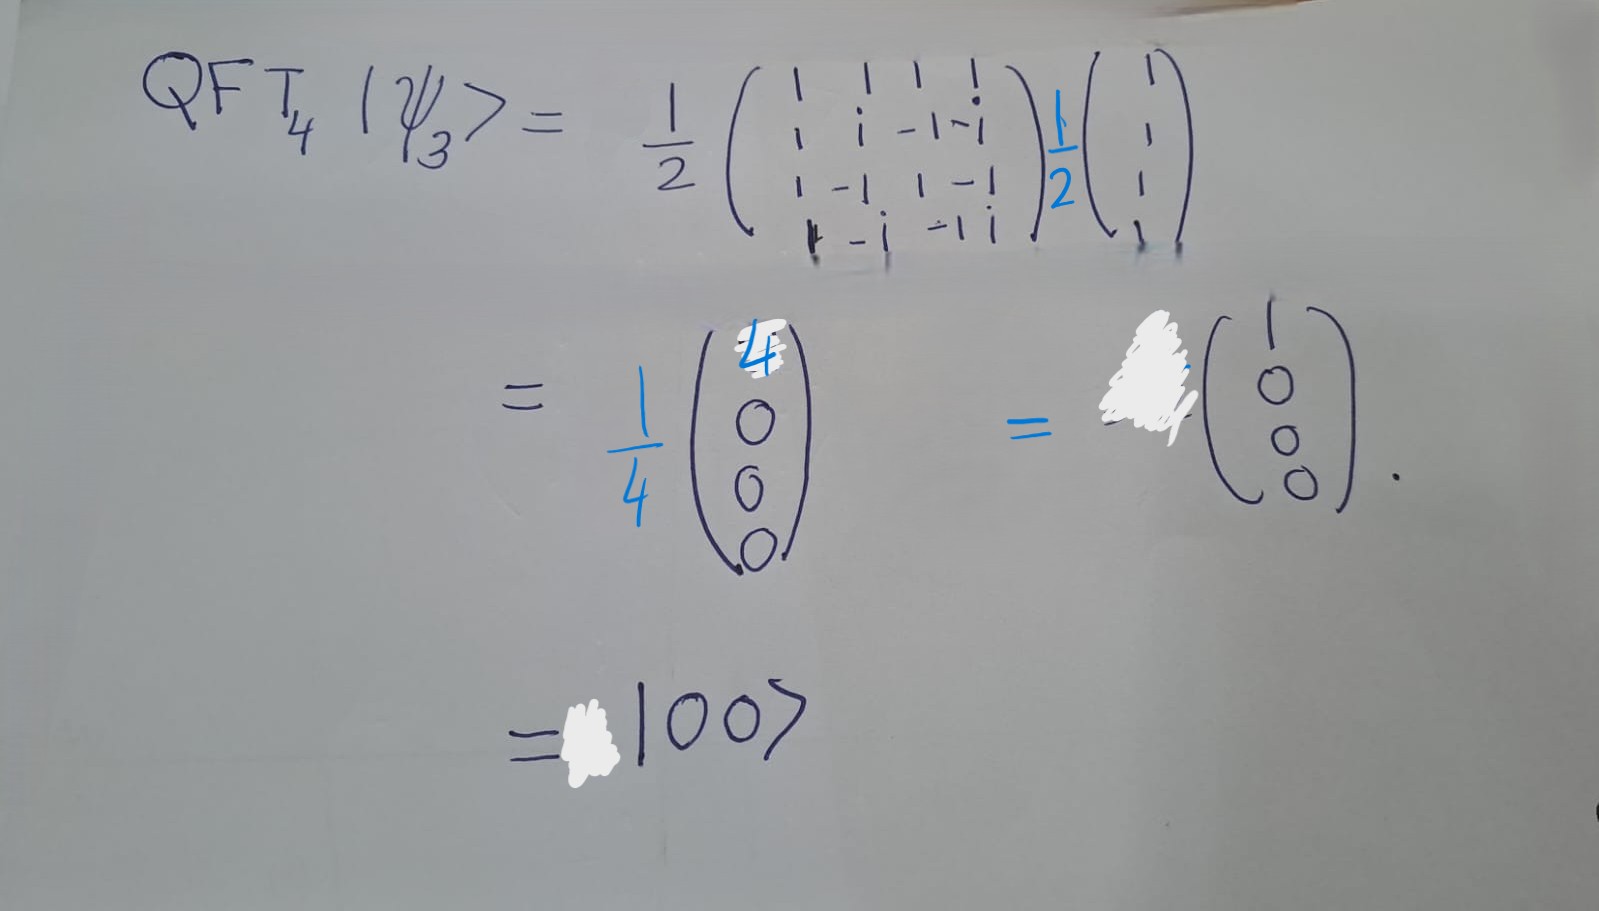 QFT₄ |ψ₃> = 1/2 ( 1 1 1 1 ; 1 i -1 -i ; 1 -1 1 -1 ; 1 -i -1 i ) 1/2 ( 1 ; 1 ; 1 ; 1 )
= 1/4 ( 4 ; 0 ; 0 ; 0 ) = ( 1 ; 0 ; 0 ; 0 ) .
= |00>